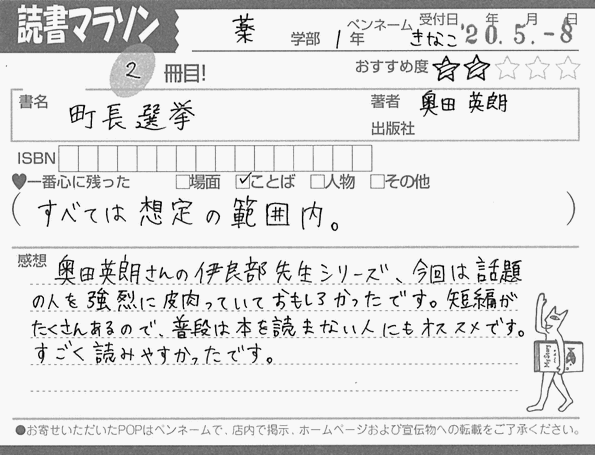 読書マラソン
薬 学部 1年 ペンネーム きなこ 受付日 '20.5.-8 年 月 日
2 冊目! おすすめ度 ★★☆☆☆
書名 町長選挙 著者 奥田 英朗
出版社
ISBN
♥一番心に残った □場面 ☑ことば □人物 □その他
(すべては想定の範囲内。)
感想 奥田英朗さんの伊良部先生シリーズ、今回は話題
の人を強烈に皮肉っていておもしろかったです。短編が
たくさんあるので、普段は本を読まない人にもオススメです。
すごく読みやすかったです。
●お寄せいただいたPOPはペンネームで、店内で掲示、ホームページおよび宣伝物への転載をご了承ください。